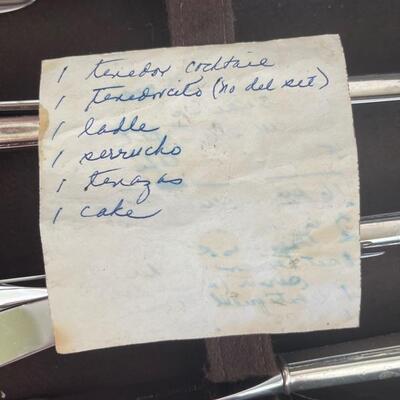 1 tenedor cocktail
1 tenedorcito (no del set)
1 ladle
1 serrucho
1 tenazas
1 cake